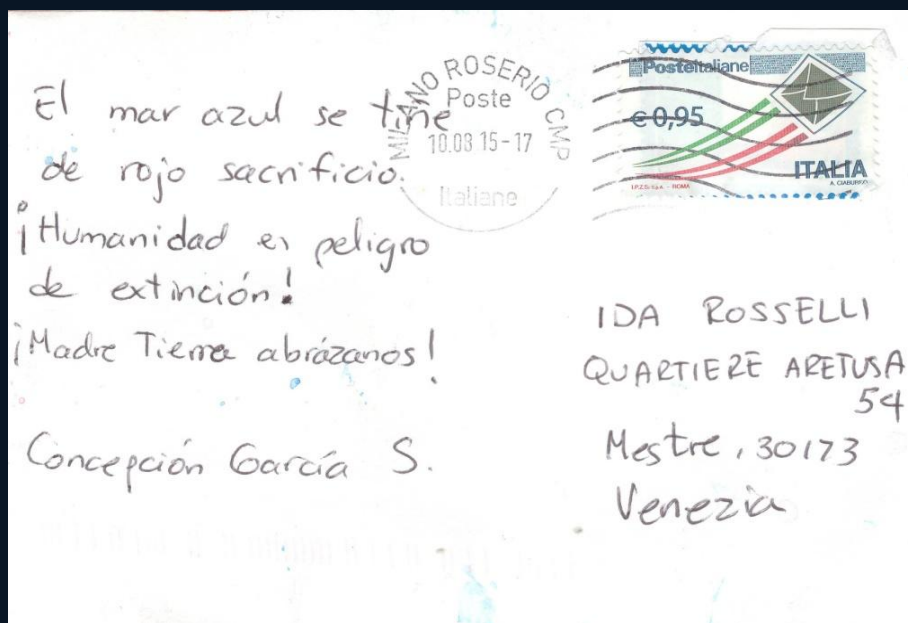 El mar azul se tiñe
de rojo sacrificio.
¡Humanidad en peligro
de extinción!
¡Madre Tierra abrázanos!
Concepción García S.
MILANO ROSERIO CMP
Poste
10.08 15-17
Italiane
Posteitaliane
€ 0,95
ITALIA
A. CIABURRO
I.P.Z.S. S.p.A. - ROMA
IDA ROSSELLI
QUARTIERE ARETUSA
54
Mestre, 30173
Venezia